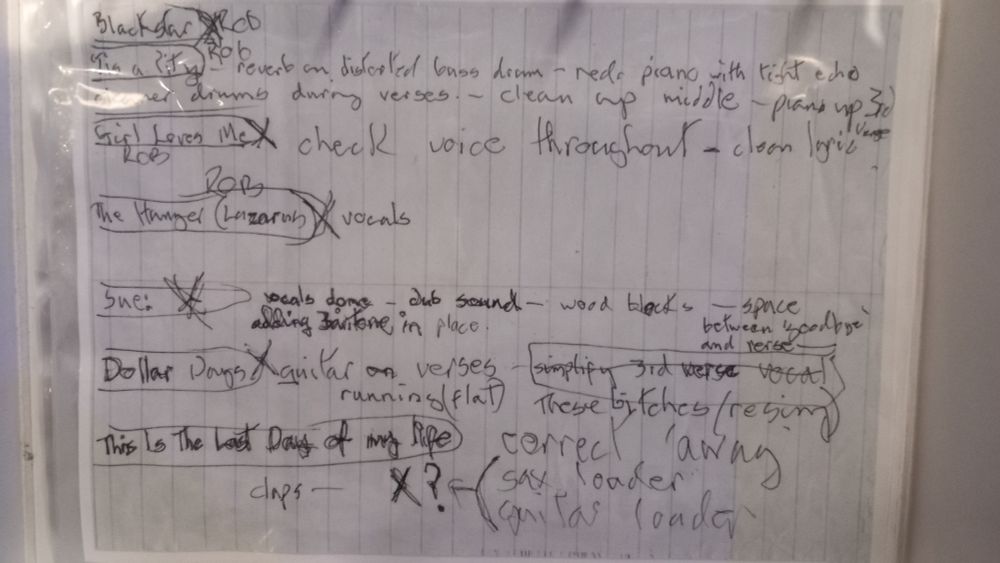 Blackstar X ROB
ROB
Tis a Pity - reverb on distorted bass drum - redo piano with right echo
drums during verses - clean up middle - piano up 3rd verse
Girl Loves Me X check voice throughout - clean
ROB
ROB
The Hunger (Lazarus) X vocals
Sue: X vocals done - dub sound - wood blocks - space
adding Baritone in place. between goodbye
and verse
Dollar Days X guitar on verses - simplify 3rd verse vocal
running (flat) These bitches (resing)
This Is The Last Day of my life correct 'away
claps - X? sax louder
guitar louder